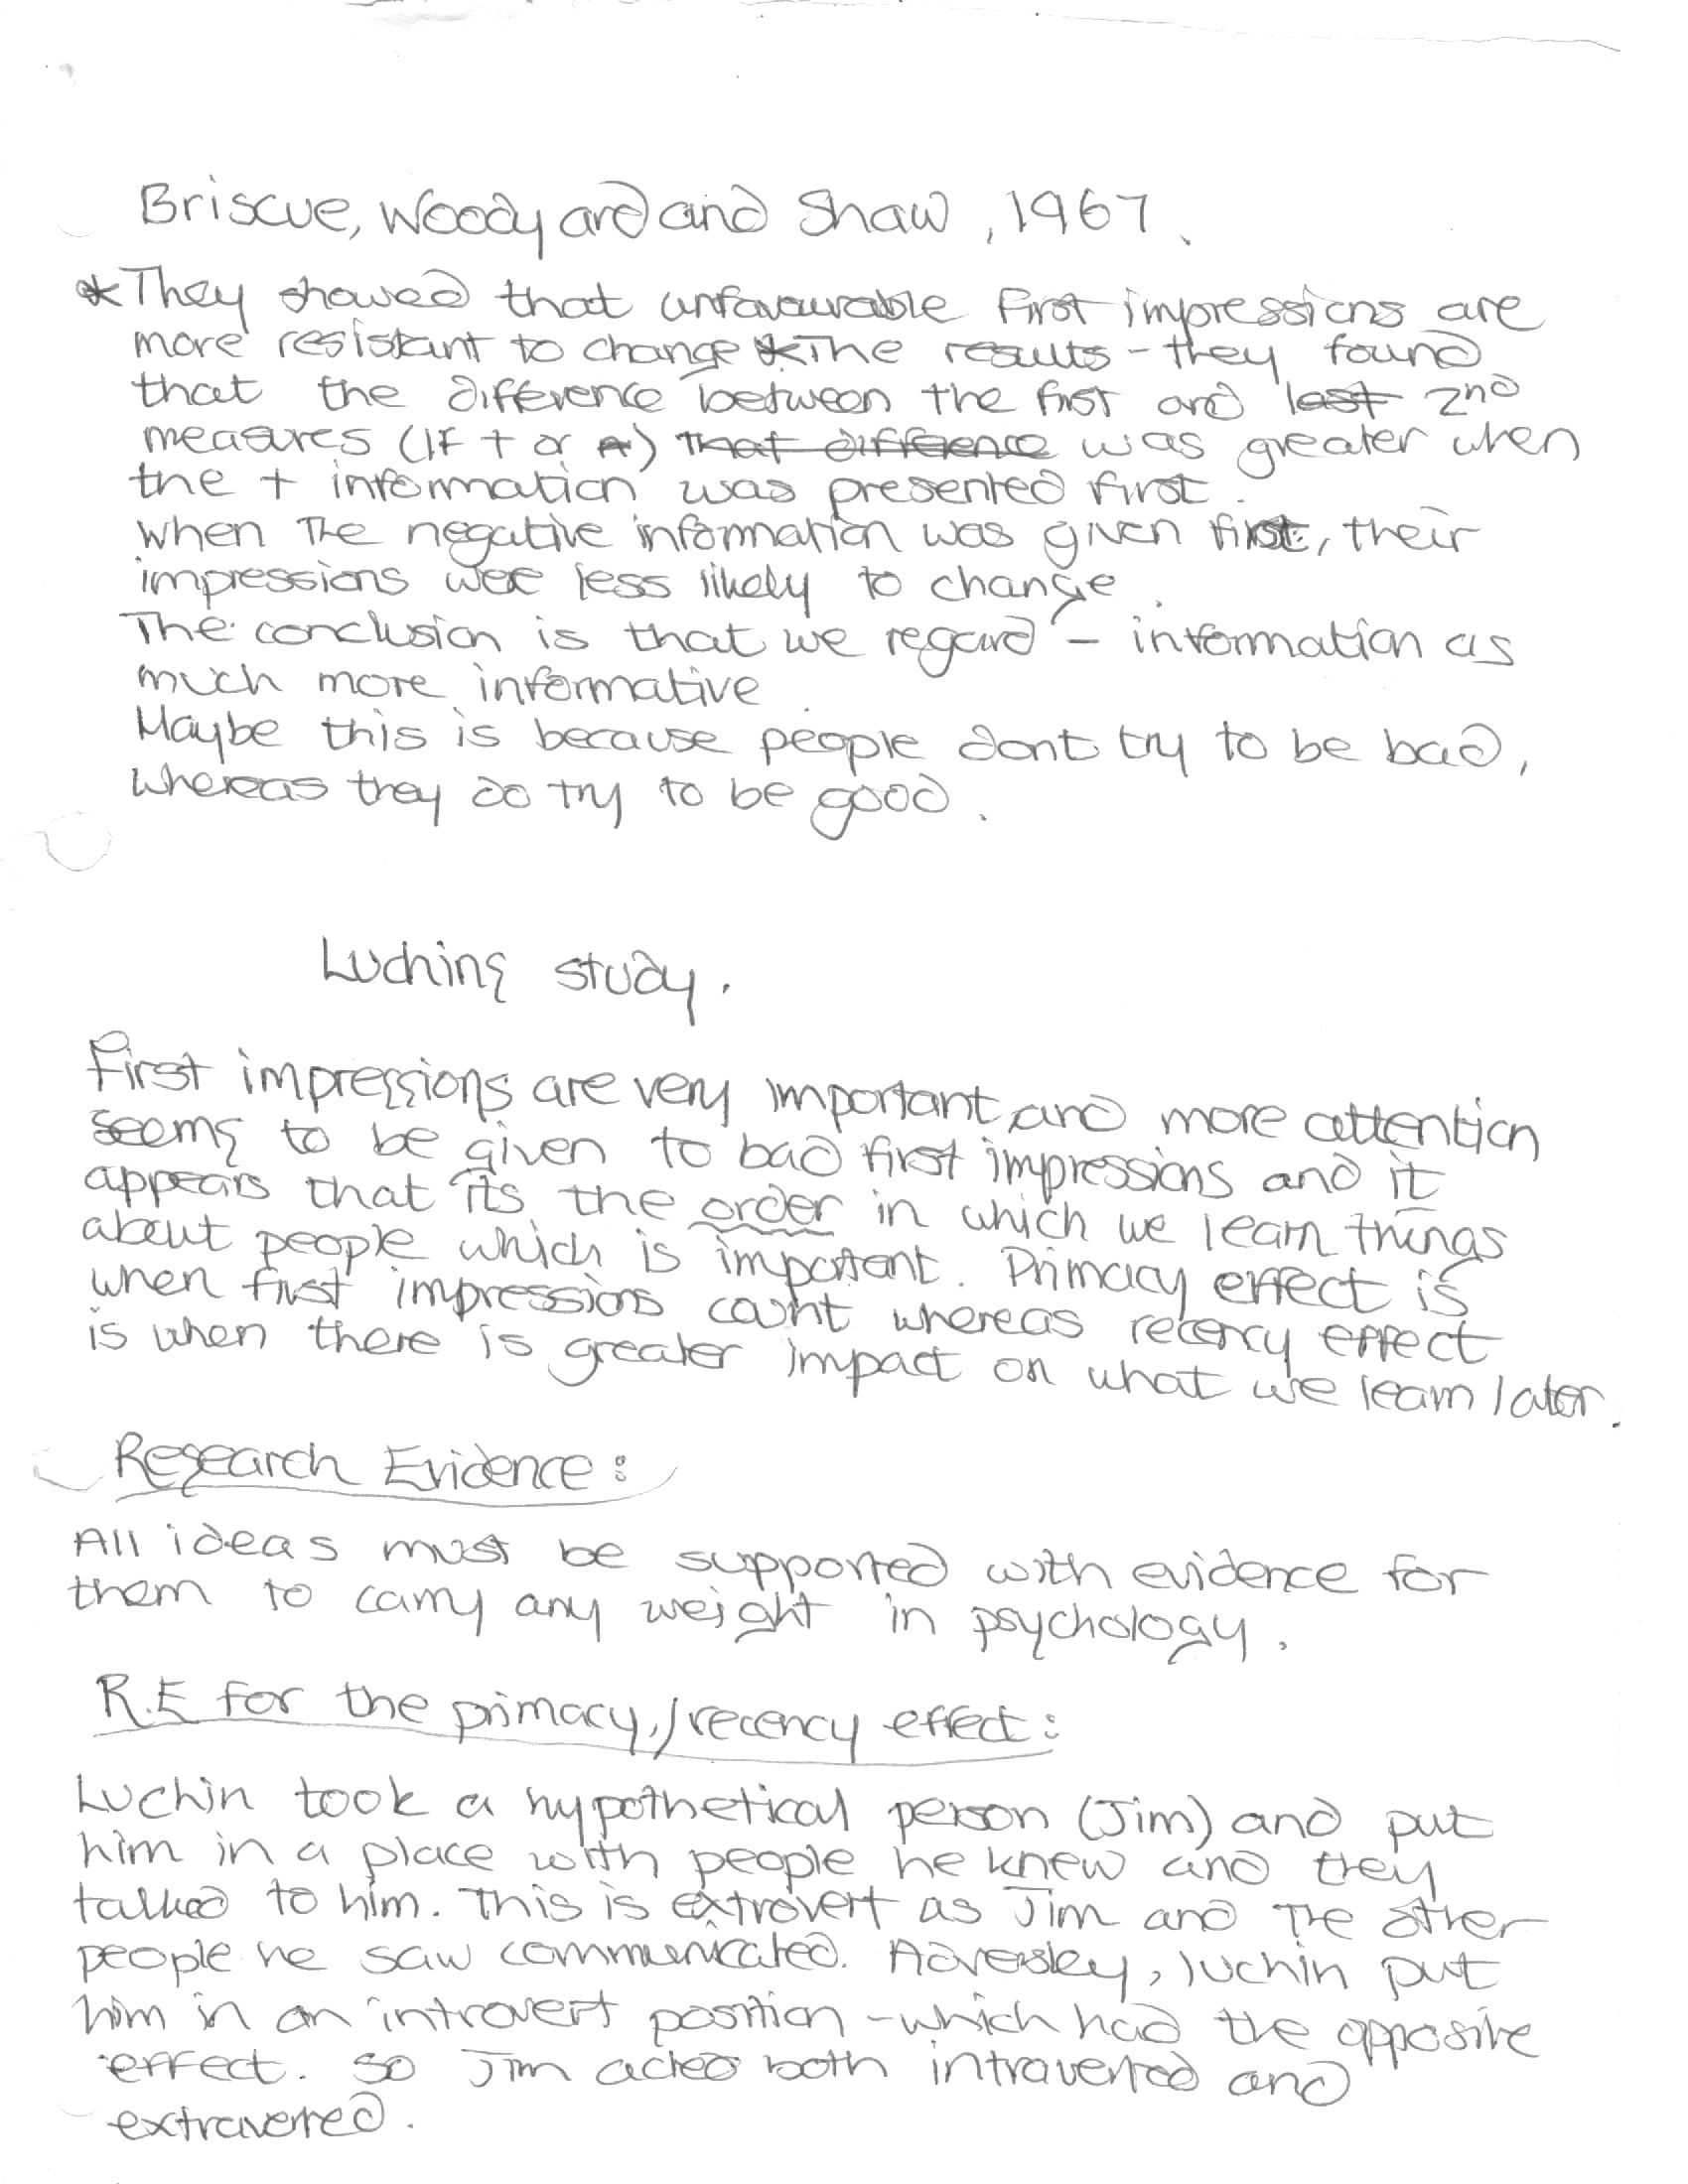 Briscue, Woodyard and Shaw, 1967.
*They showed that unfavourable first impressions are
more resistant to change *The results - they found
that the difference between the first and last 2nd
measures (IF + or ) that difference was greater when
the + information was presented first.
When the negative information was given first, their
impressions were less likely to change.
The conclusion is that we regard - information as
much more informative.
Maybe this is because people dont try to be bad,
whereas they do try to be good.
Luchins study.
First impressions are very important and more attention
seems to be given to bad first impressions and it
appears that its the order in which we learn things
about people which is important. Primacy effect is
when first impressions count whereas recency effect
is when there is greater impact on what we learn later.
Research Evidence:
All ideas must be supported with evidence for
them to carry any weight in psychology.
R.E for the primacy,/recency effect:
Luchin took a hypothetical person (Jim) and put
him in a place with people he knew and they
talked to him. This is extrovert as Jim and the other
people he saw communicated. Adversley, luchin put
him in an introvert position - which had the opposite
effect. So Jim acted both intraverted and
extraverted.